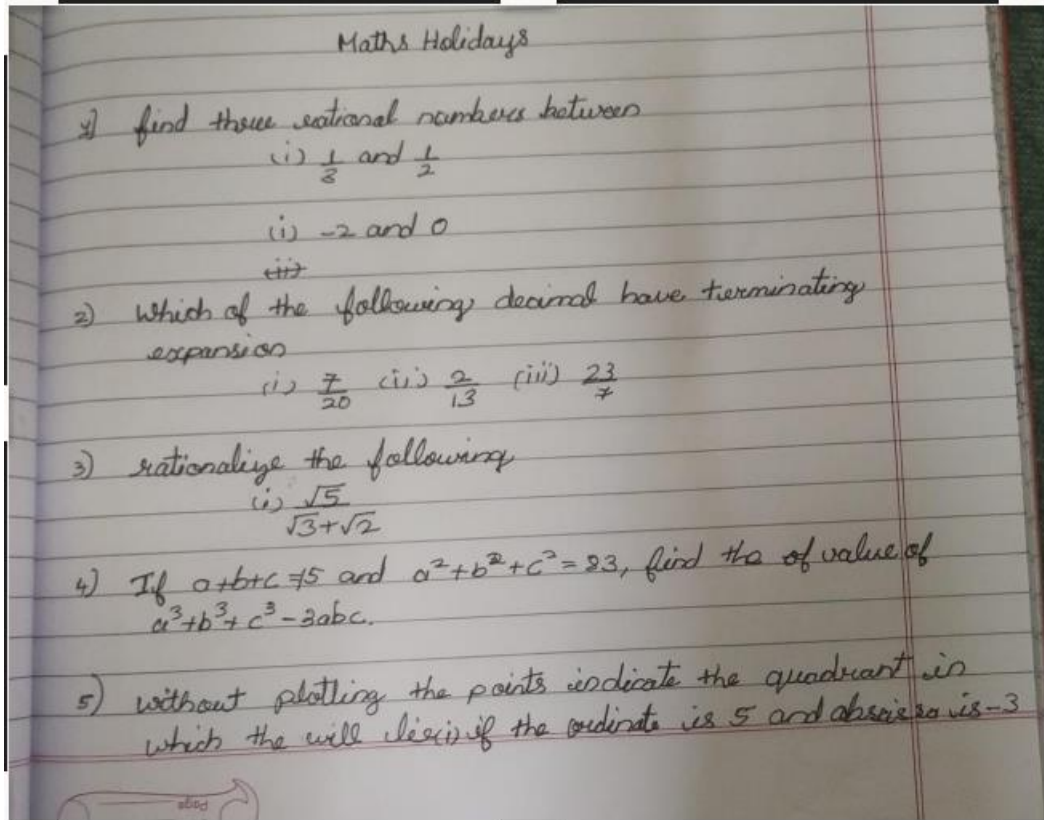 Maths Holidays
1) find three rational numbers between
(i) 1/3 and 1/2
(i) -2 and 0
(ii)
2) Which of the following decimal have terminating
expansion
(i) 7/20 (ii) 2/13 (iii) 23/7
3) rationalize the following
(i) √5/(√3+√2)
4) If a+b+c=15 and a²+b²+c²=83, find the of value of
a³+b³+c³-3abc.
5) without plotting the points indicate the quadrant in
which the will lie(i) if the ordinate is 5 and abscissa is -3
Page